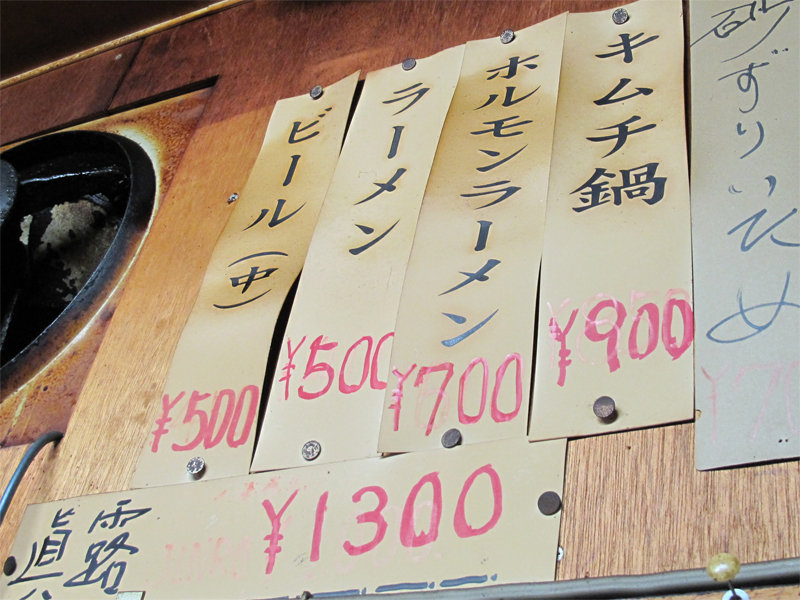 砂ずりいため
¥70
キムチ鍋
¥900
ホルモンラーメン
¥700
ラーメン
¥500
ビール(中)
¥500
眞露
¥1300